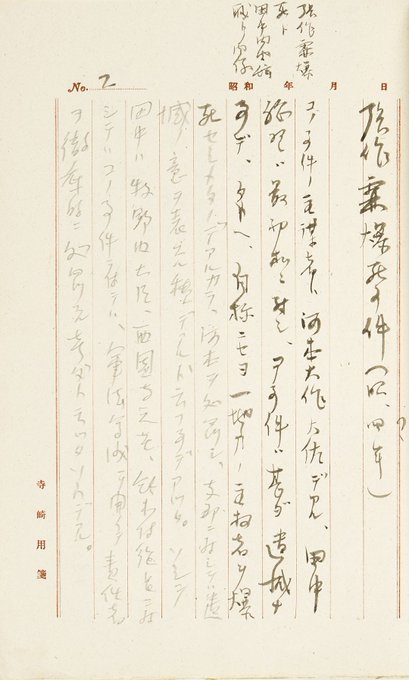 張作霖爆
死ト
田中内閣
No. 2
昭和 年 月 日
張作霖爆死事件(昭、四年)
コノ事件ノ主謀者ハ河本大作大佐デアル、田中
総理ハ最初私ニ対シ、コノ事件ハ甚ダ遺憾ナ
事デ、タトヘ、自称ニセヨ一地方ノ主権者ヲ爆
死セシメタノデアルカラ、河本ヲ処罰シ、支那ニ対シテハ遺
憾ノ意ヲ表スル積デアルト云フ事デアツタ。ソシテ
田中ハ牧野内大臣、西園寺元老、鈴木侍従長ニ対
シテハコノ事件ニ付テハ、軍法会議ヲ開イテ責任者
ヲ徹底的ニ処罰スル考ダト云ツタソウデアル。
寺崎用箋